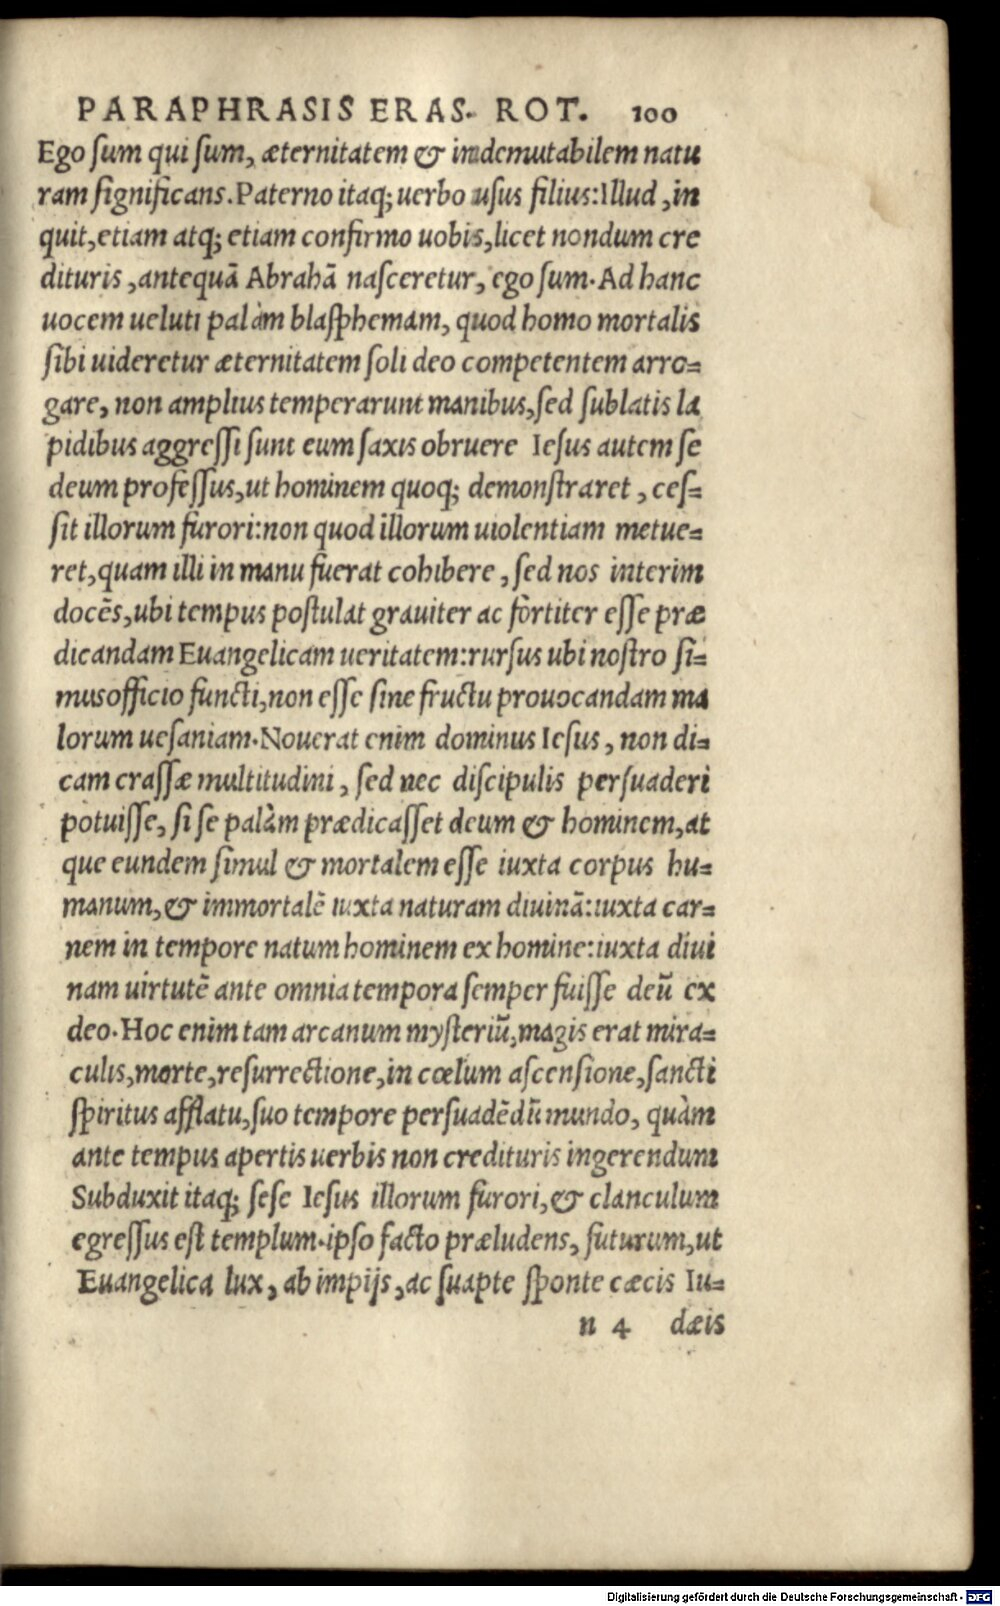 PARAPHRASIS ERAS. ROT. 100
Ego ſum qui ſum, æternitatem & indemutabilem natu
ram ſignificans. Paterno itaq; uerbo uſus filius: Illud, in
quit, etiam atq; etiam confirmo uobis, licet nondum cre
dituris, antequã Abrahã naſceretur, ego ſum. Ad hanc
uocem ueluti palàm blaſphemam, quod homo mortalis
ſibi uideretur æternitatem ſoli deo competentem arro=
gare, non amplius temperarunt manibus, ſed ſublatis la
pidibus aggreſſi ſunt eum ſaxis obruere Ieſus autem ſe
deum profeſſus, ut hominem quoq; demonſtraret, ceſ=
ſit illorum furori: non quod illorum uiolentiam metue=
ret, quam illi in manu fuerat cohibere, ſed nos interim
docẽs, ubi tempus poſtulat grauiter ac fòrtiter eſſe præ
dicandam Euangelicam ueritatem: rurſus ubi noſtro ſi=
mus officio functi, non eſſe ſine fructu prouocandam ma
lorum ueſaniam. Nouerat enim dominus Ieſus, non di=
cam craſſæ multitudini, ſed nec diſcipulis perſuaderi
potuiſſe, ſi ſe palàm prædicaſſet deum & hominem, at
que eundem ſimul & mortalem eſſe iuxta corpus hu=
manum, & immortalẽ iuxta naturam diuinã: iuxta car=
nem in tempore natum hominem ex homine: iuxta diui
nam uirtutẽ ante omnia tempora ſemper fuiſſe deũ ex
deo. Hoc enim tam arcanum myſteriũ, magis erat mira=
culis, morte, reſurrectione, in cœlum aſcenſione, ſancti
ſpiritus afflatu, ſuo tempore perſuadẽdũ mundo, quàm
ante tempus apertis uerbis non credituris ingerendum
Subduxit itaq; ſeſe Ieſus illorum furori, & clanculum
egreſſus eſt templum. ipſo facto præludens, futurum, ut
Euangelica lux, ab impijs, ac ſuapte ſponte cæcis Iu=
n 4 dæis
Digitalisierung gefördert durch die Deutsche Forschungsgemeinschaft - DFG